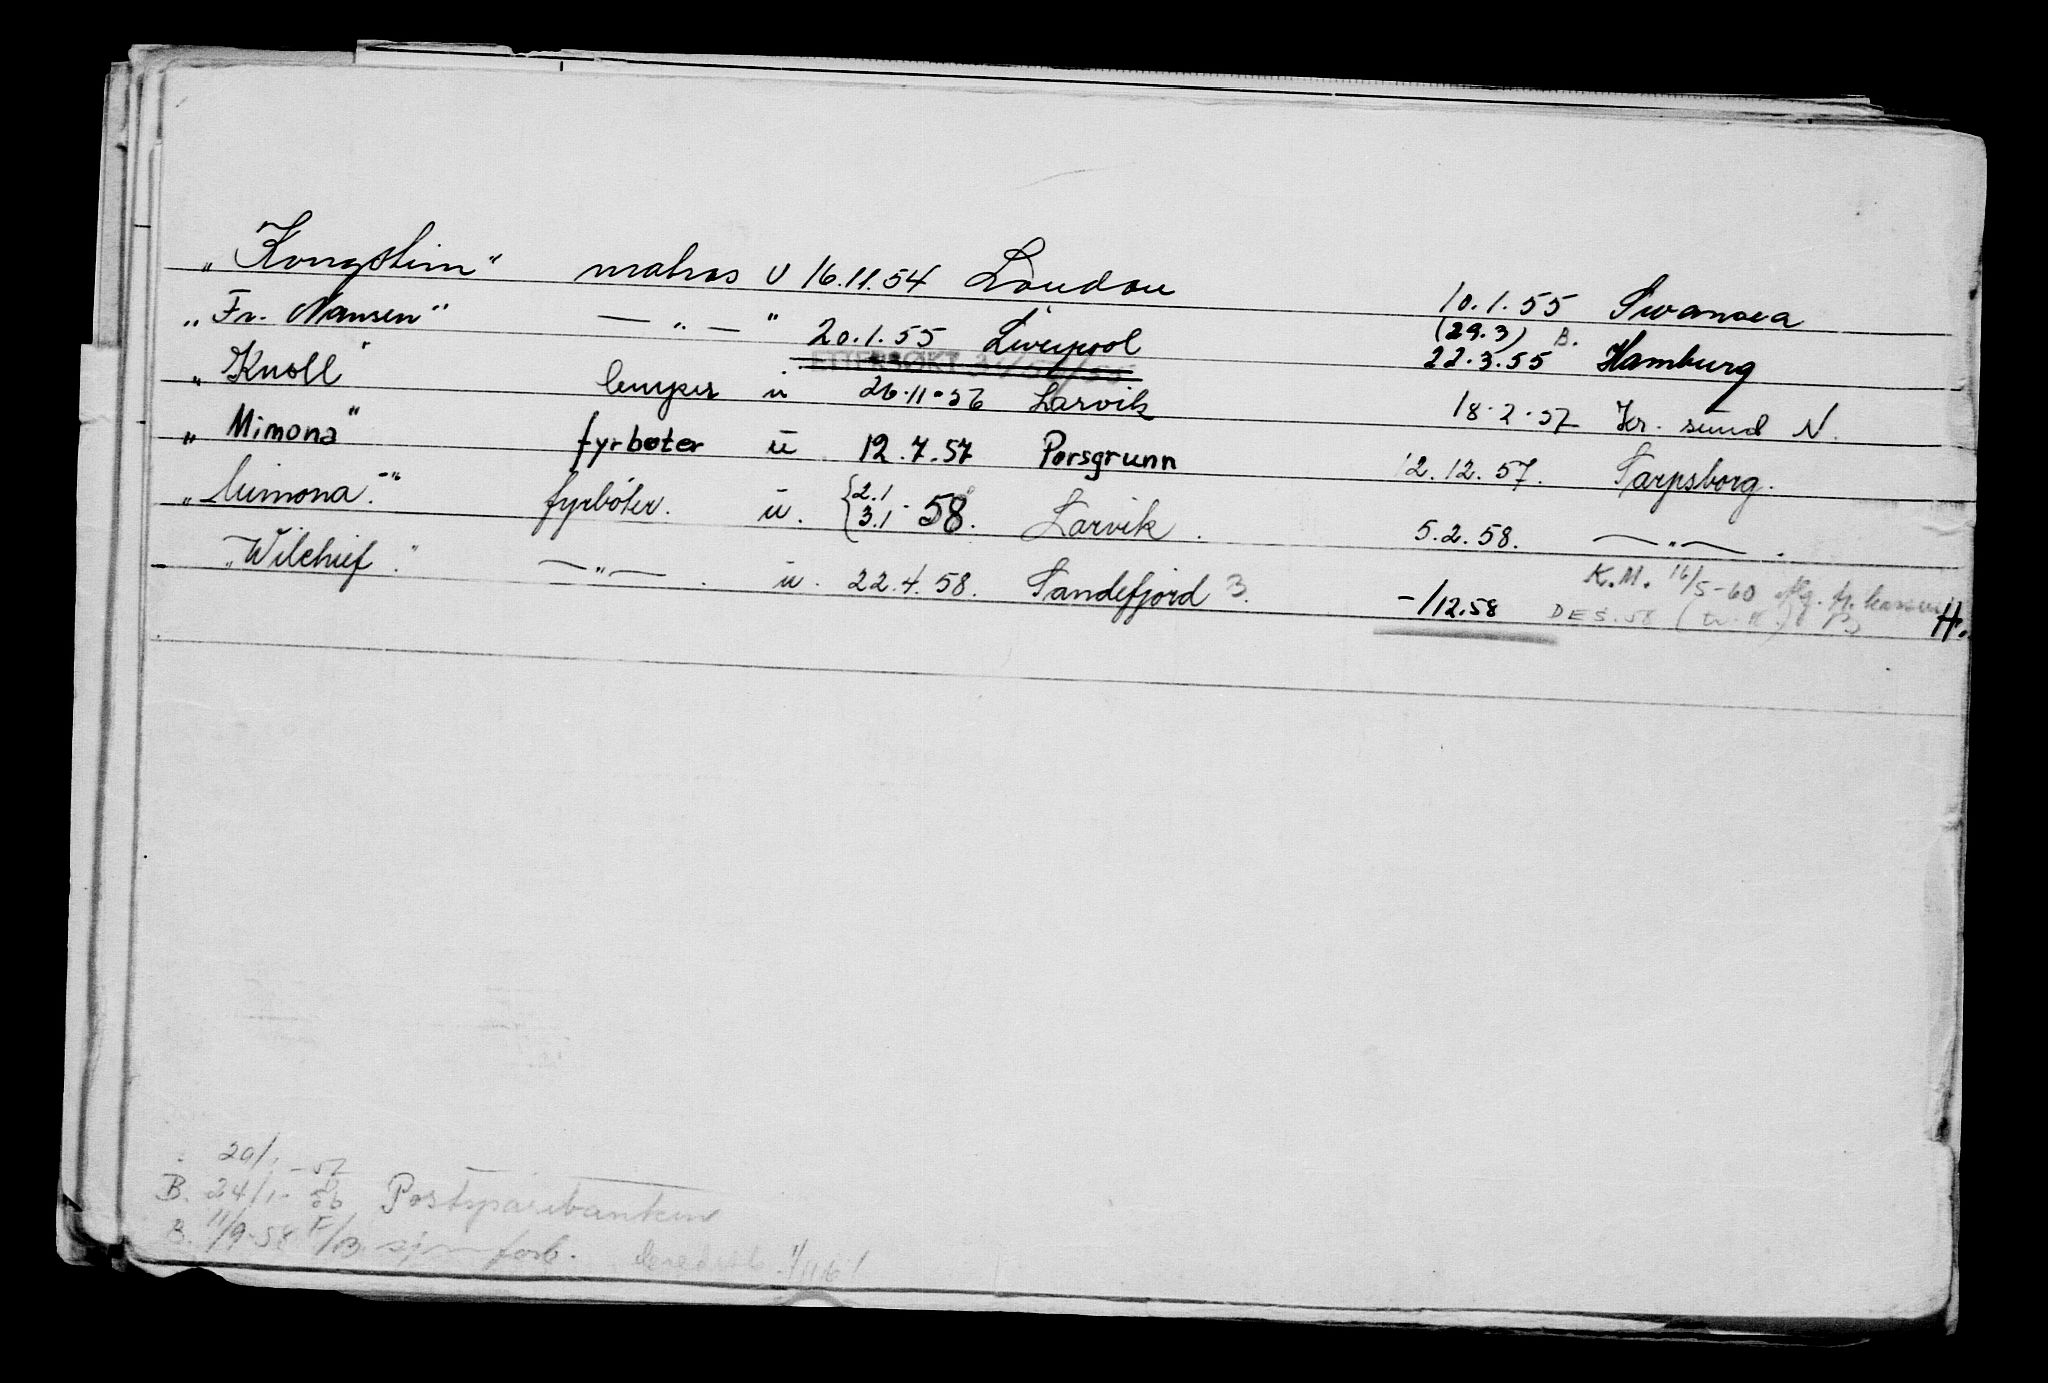 „Kongstein“ matros u 16.11.54 London 10.1.55 Swansea
„Fr. Nansen“ — „ — " 20.1.55 Liverpool (29.3) B. 22.3.55 Hamburg
ETTERSØKT
„Knoll“ lemper u 26.11.56 Larvik 18.2.57 Kr. sund N.
„Mimona“ fyrbøter u 12.7.57 Porsgrunn 12.12.57. Sarpsborg.
„Mimona.“ fyrbøter. u. {2.1 3.1 58. Larvik. 5.2.58. — „ — .
„Wilchief.“ — „ — . u. 22.4.58. Sandefjord B. -/12.58
K.M. 16/5-60
DES. 58 H.
29/1-57
B. 24/1-56 Postsparebanken
B. 11/9-58 F/B. sjm forb.